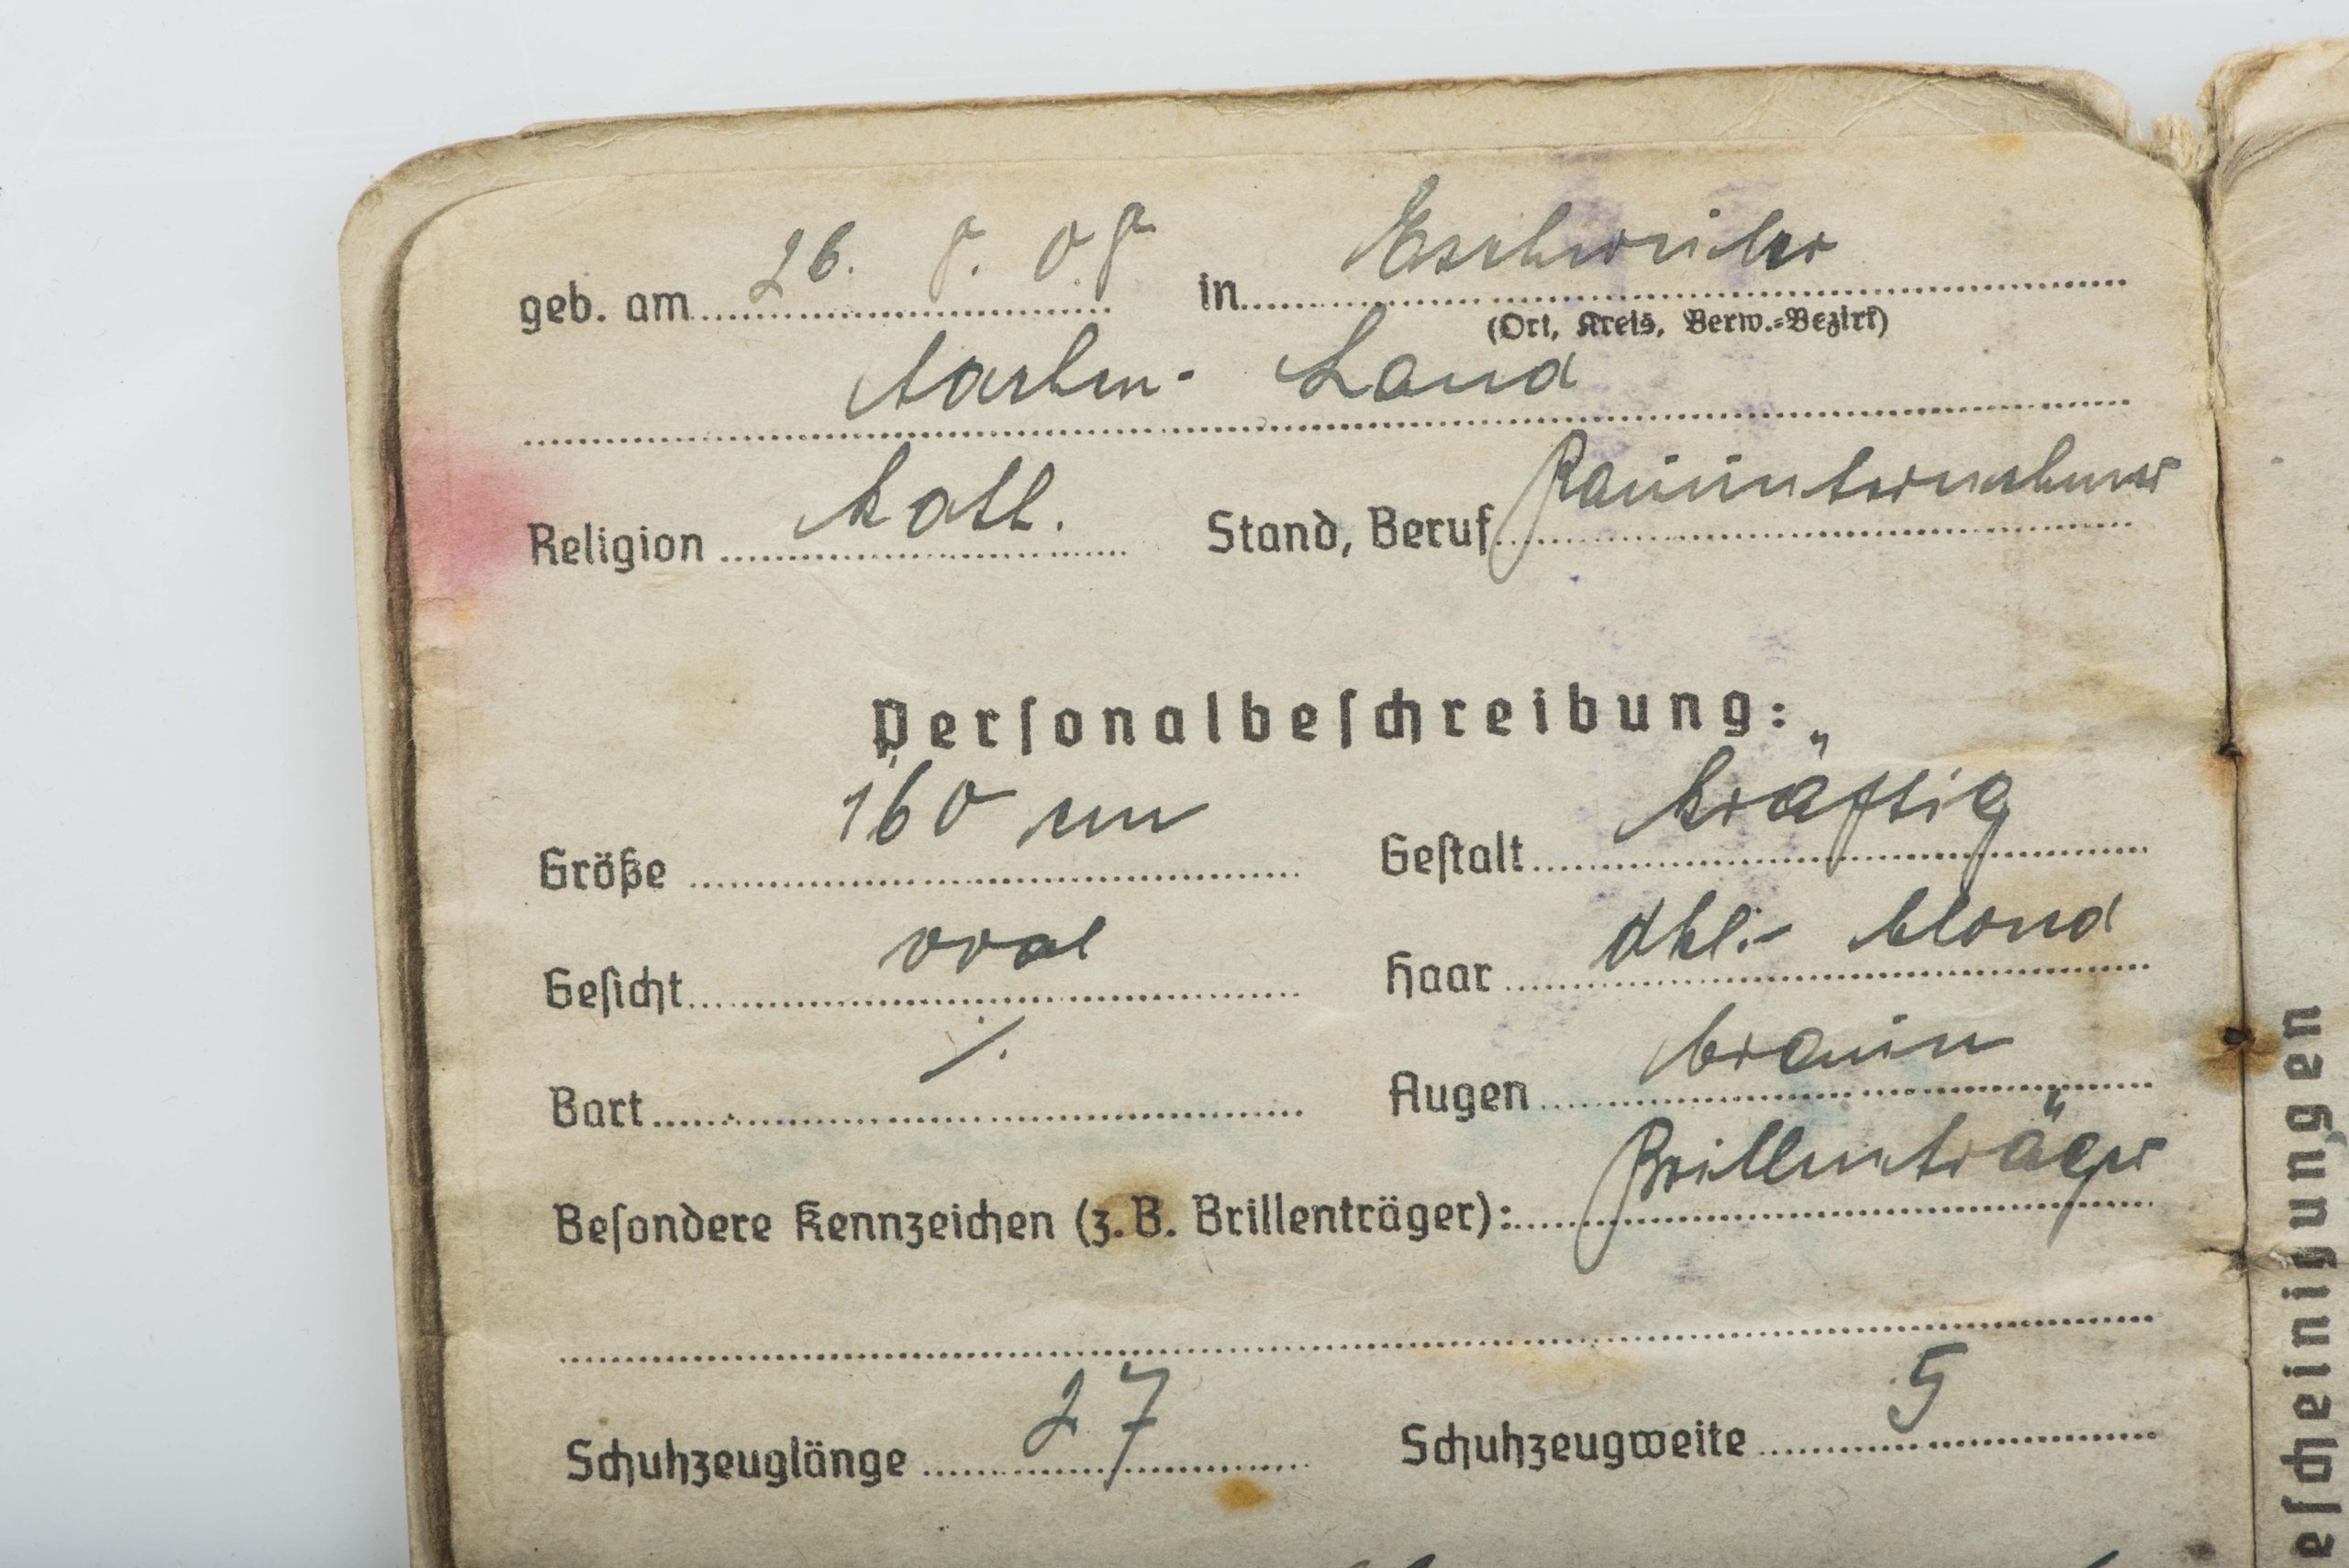 geb. am 26. 8. 08 in Eschweiler
(Ort, Kreis, Verw.=Bezirk)
Aachen- Land
Religion kath. Stand, Beruf Bauunternehmer
Personalbeschreibung:
Größe 160 cm Gestalt kräftig
Gesicht oval Haar dkl.- blond
Bart ⁒ Augen braun
Besondere Kennzeichen (z.B. Brillenträger): Brillenträger
Schuhzeuglänge 27 Schuhzeugweite 5